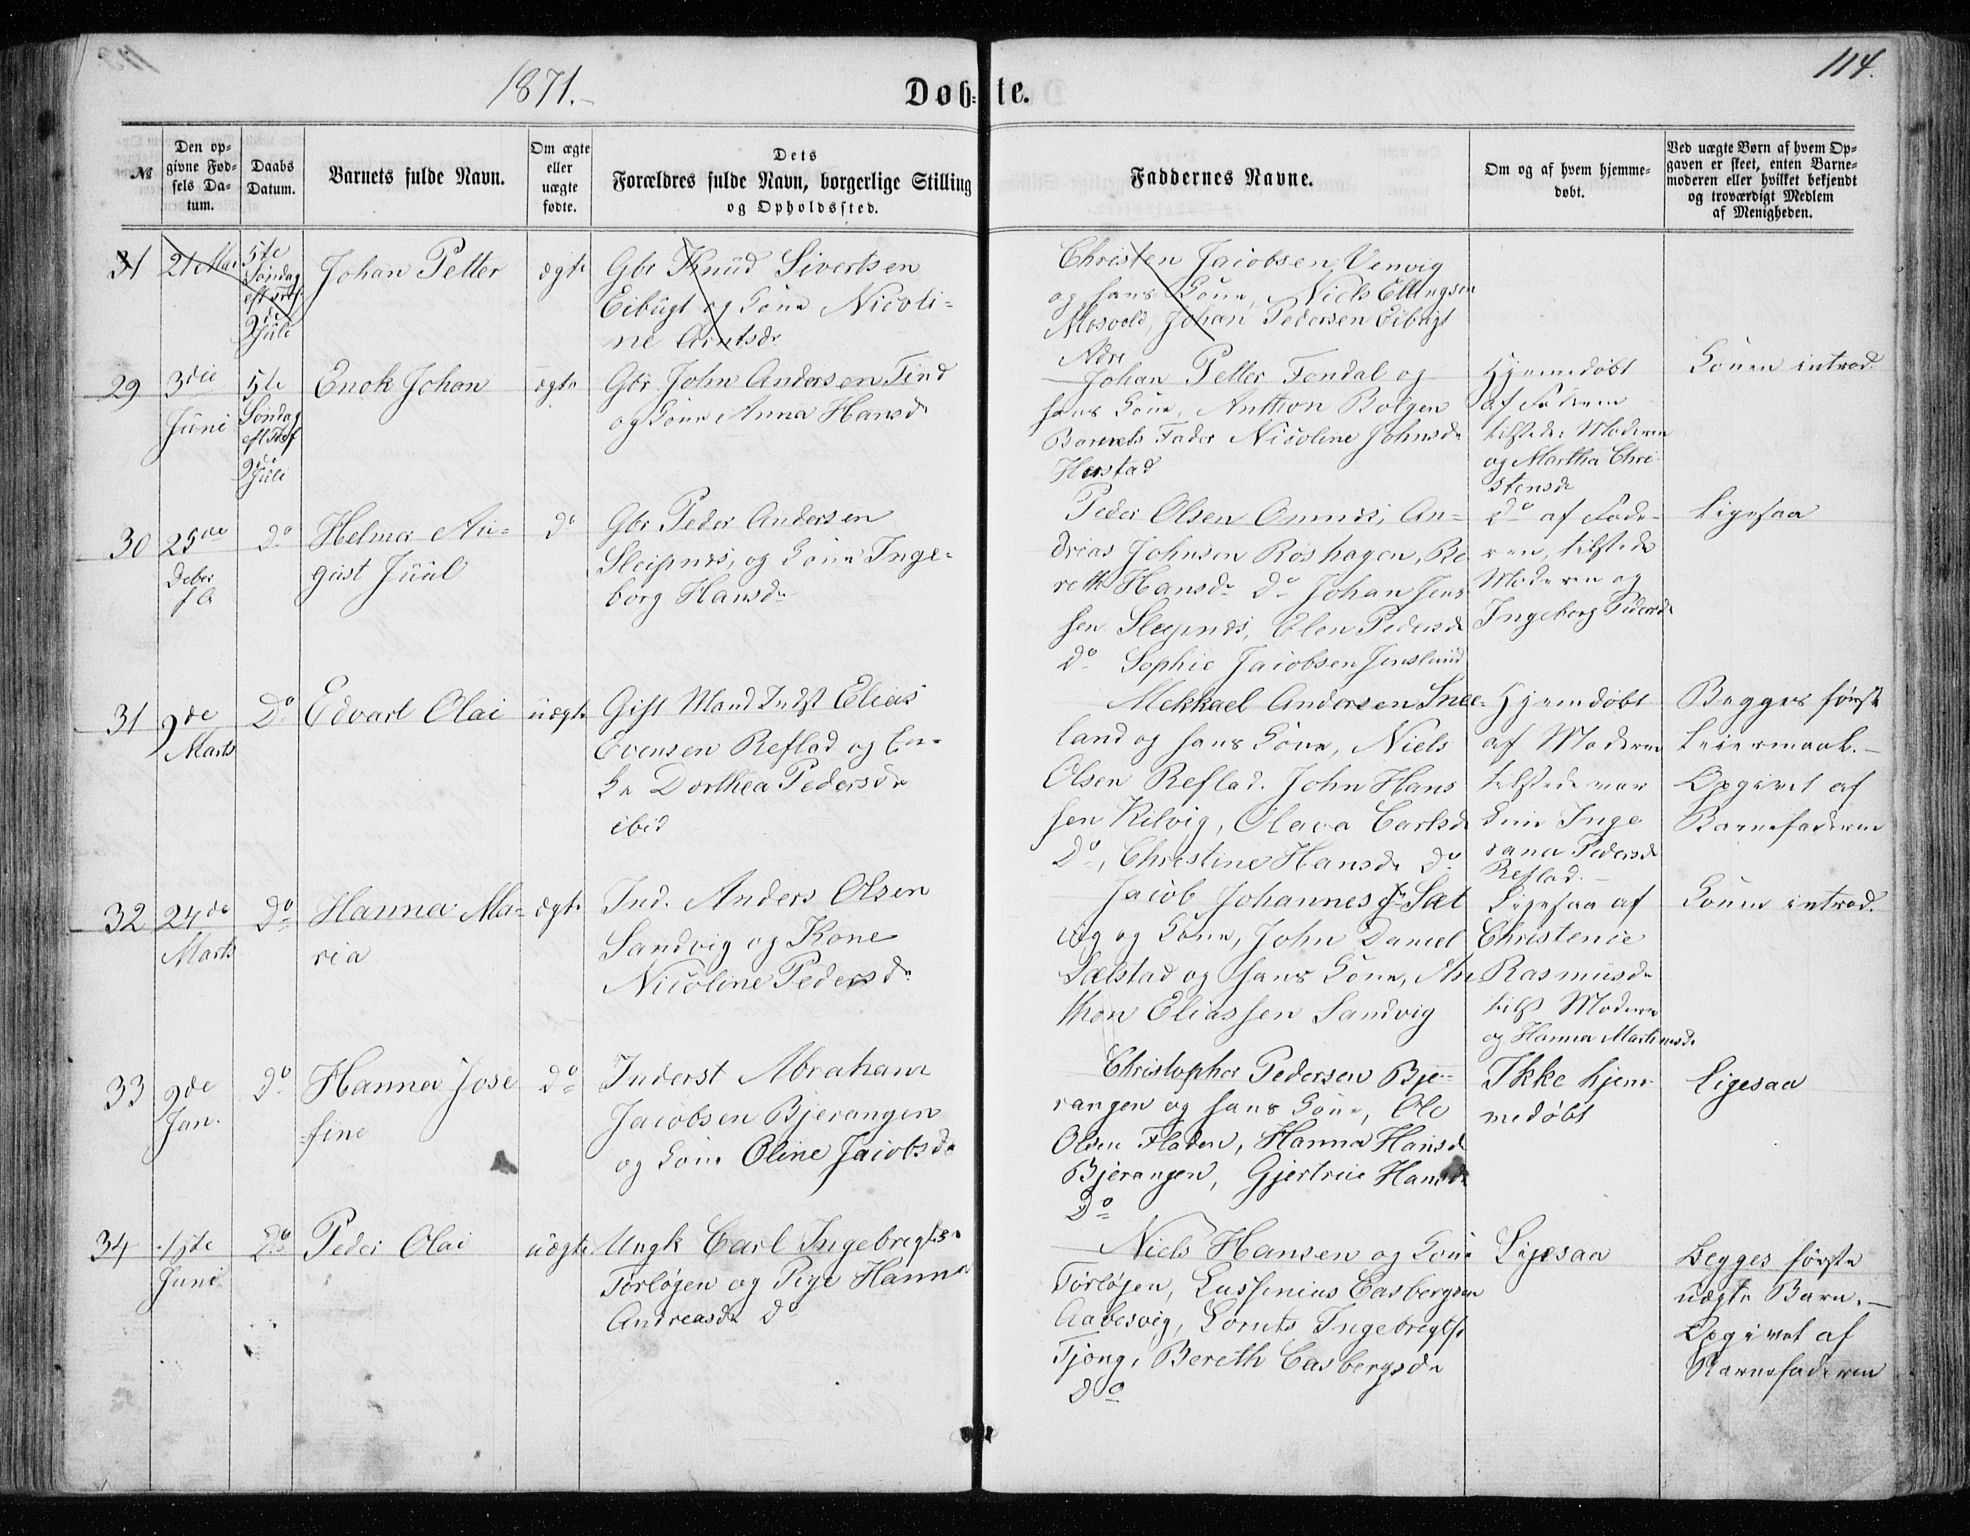 1871.
Døbte.
114.
№
Den opgivne Fødsels Datum.
Daabs Datum.
Barnets fulde Navn.
Om ægte eller uægte fødte.
Dets
Forældres fulde Navn, borgerlige Stilling
og Opholdssted.
Faddernes Navne.
Om og af hvem hjemmedøbt.
Ved uægte Børn af hvem Opgaven er skeet, enten Barnemoderen eller hvilket bekjendt og troværdigt Medlem af Menigheden.
31 21 Mai 5te Johan Petter ægte Gbr Knud Sivertsen
Søndag
eft Tref
9de
Juli
Eibugt og Kone Nicoli-
ne Arntsdr
Christen Jacobsen Venvig
og hans Kone, Niels Ellingsen
Mosvold, Johan Pedersen Eibugt
Ndre
29 3die 5te Enok Johan ægte Gbr John Andersen Find
Juni
Søndag
eft Tref
9de
Juli
og Kone Anna Hansdr
Johan Petter Fondal og
hans Kone, Anthon Bolgen
Barnets Fader Nicoline Johnsdr
Harstad
Hjemmedøbt
af Faderen
tilstede Moderen
og Martha Chri
stensdr
Konen introd.
30 25de Do Helmer Au- do Gbr Peder Andersen
Deber
f A
gust Juul
Sleipnes, og Kone Inge-
borg Hansdr
Peder Olsen Onnes, An-
drias Johnsen Røshagen, Be
reth Hansdr do Johan Jens
sen Sleipnes, Elen Pedersdr
do Sophie Jacobsen Jenslund
do af Fade-
ren, tilstede
Moderen og
Ingeborg Pedersdr
Ligesaa
31 9de Do Edvart Olai uægte Gift Mand Indst Elias
Marts
Evensen Reflad og En-
ke Dorthea Pedersdr
ibid
Mekkael Andersen Snee-
land og hans Kone, Niels
Olsen Reflad. John Hans
sen Kilvig, Olava Carlsdr
Do, Christine Hansdr do
Hjemdøbt
af Moderen
tilstede var
Kun Inge
rana Pedersdr
Reflad.
Begges første
Leiermaal.
Opgivet af
Barnefaderen
32 24de Do Hanna Ma- ægte Ind. Anders Olsen
Marts
ria
Sandvig og Kone
Nicoline Pedersdr
Jacob Johannes Sæl
vig og Kone, John Daniel
Sælstad og hans Kone, An
thon Eliassen Sandvig
Ligesaa af
Christence
Rasmusdr
tilst Moderen
og Hanna Martinusdr
Konen introd.
33 9de Do Hanna Jose do Inderst Abraham
Jan.
fine
Jacobsen Bjerangen
og Kone Oline Jacobsdr
Christopher Pedersen Bje-
rangen og hans Kone, Ole
Olsen Fladen, Hanna Hansdr
Bjerangen, Gjertrue Hansdr
Do
Ikke hjem
medøbt
Ligesaa
34 1ste Do Peder Olai uægte Ungk Carl Ingebrigtsn
Juni
Forløgen og Pige Hanna
Andreasdr do
Niels Hansen og Kone
Forløgen, Lussenius Casbergsen
Aabesvig, Lornts Ingebrigts
Tjong, Bereth Casbergsdr
do
Ligesaa
Begges første
uægte Barn.
Opgivet af
Barnefaderen